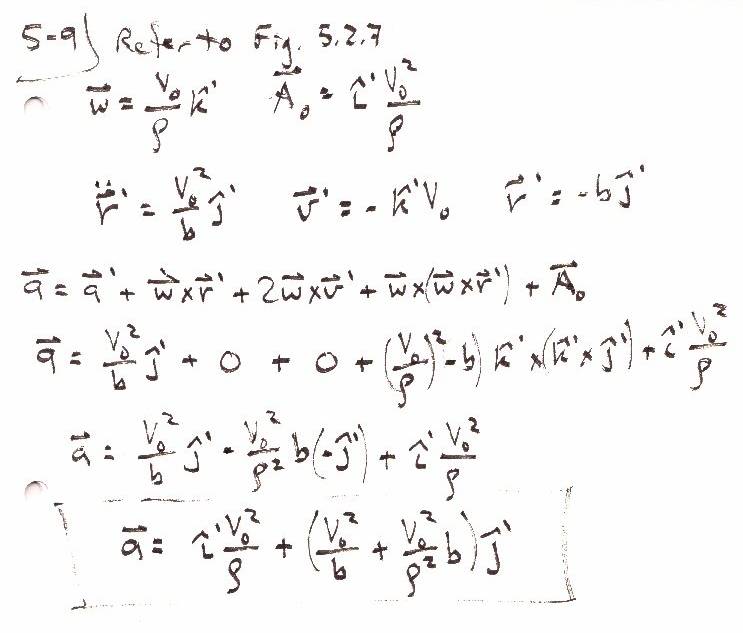 5-9) Refer to Fig. 5.2.7
w⃗ = V₀/ρ k̂' A⃗₀ = î' V₀²/ρ
r̈⃗' = V₀²/b ĵ' v⃗' = - k̂'V₀ r⃗' = -bĵ'
a⃗ = a⃗' + ẇ⃗×r⃗' + 2w⃗×v⃗' + w⃗×(w⃗×r⃗') + A⃗₀
a⃗ = V₀²/b ĵ' + 0 + 0 + (V₀/ρ)²-b) k̂'×(k̂'×ĵ') + î' V₀²/ρ
a⃗ = V₀²/b ĵ' - V₀²/ρ² b(-ĵ') + î' V₀²/ρ
a⃗ = î' V₀²/ρ + (V₀²/b + V₀²/ρ² b) ĵ'